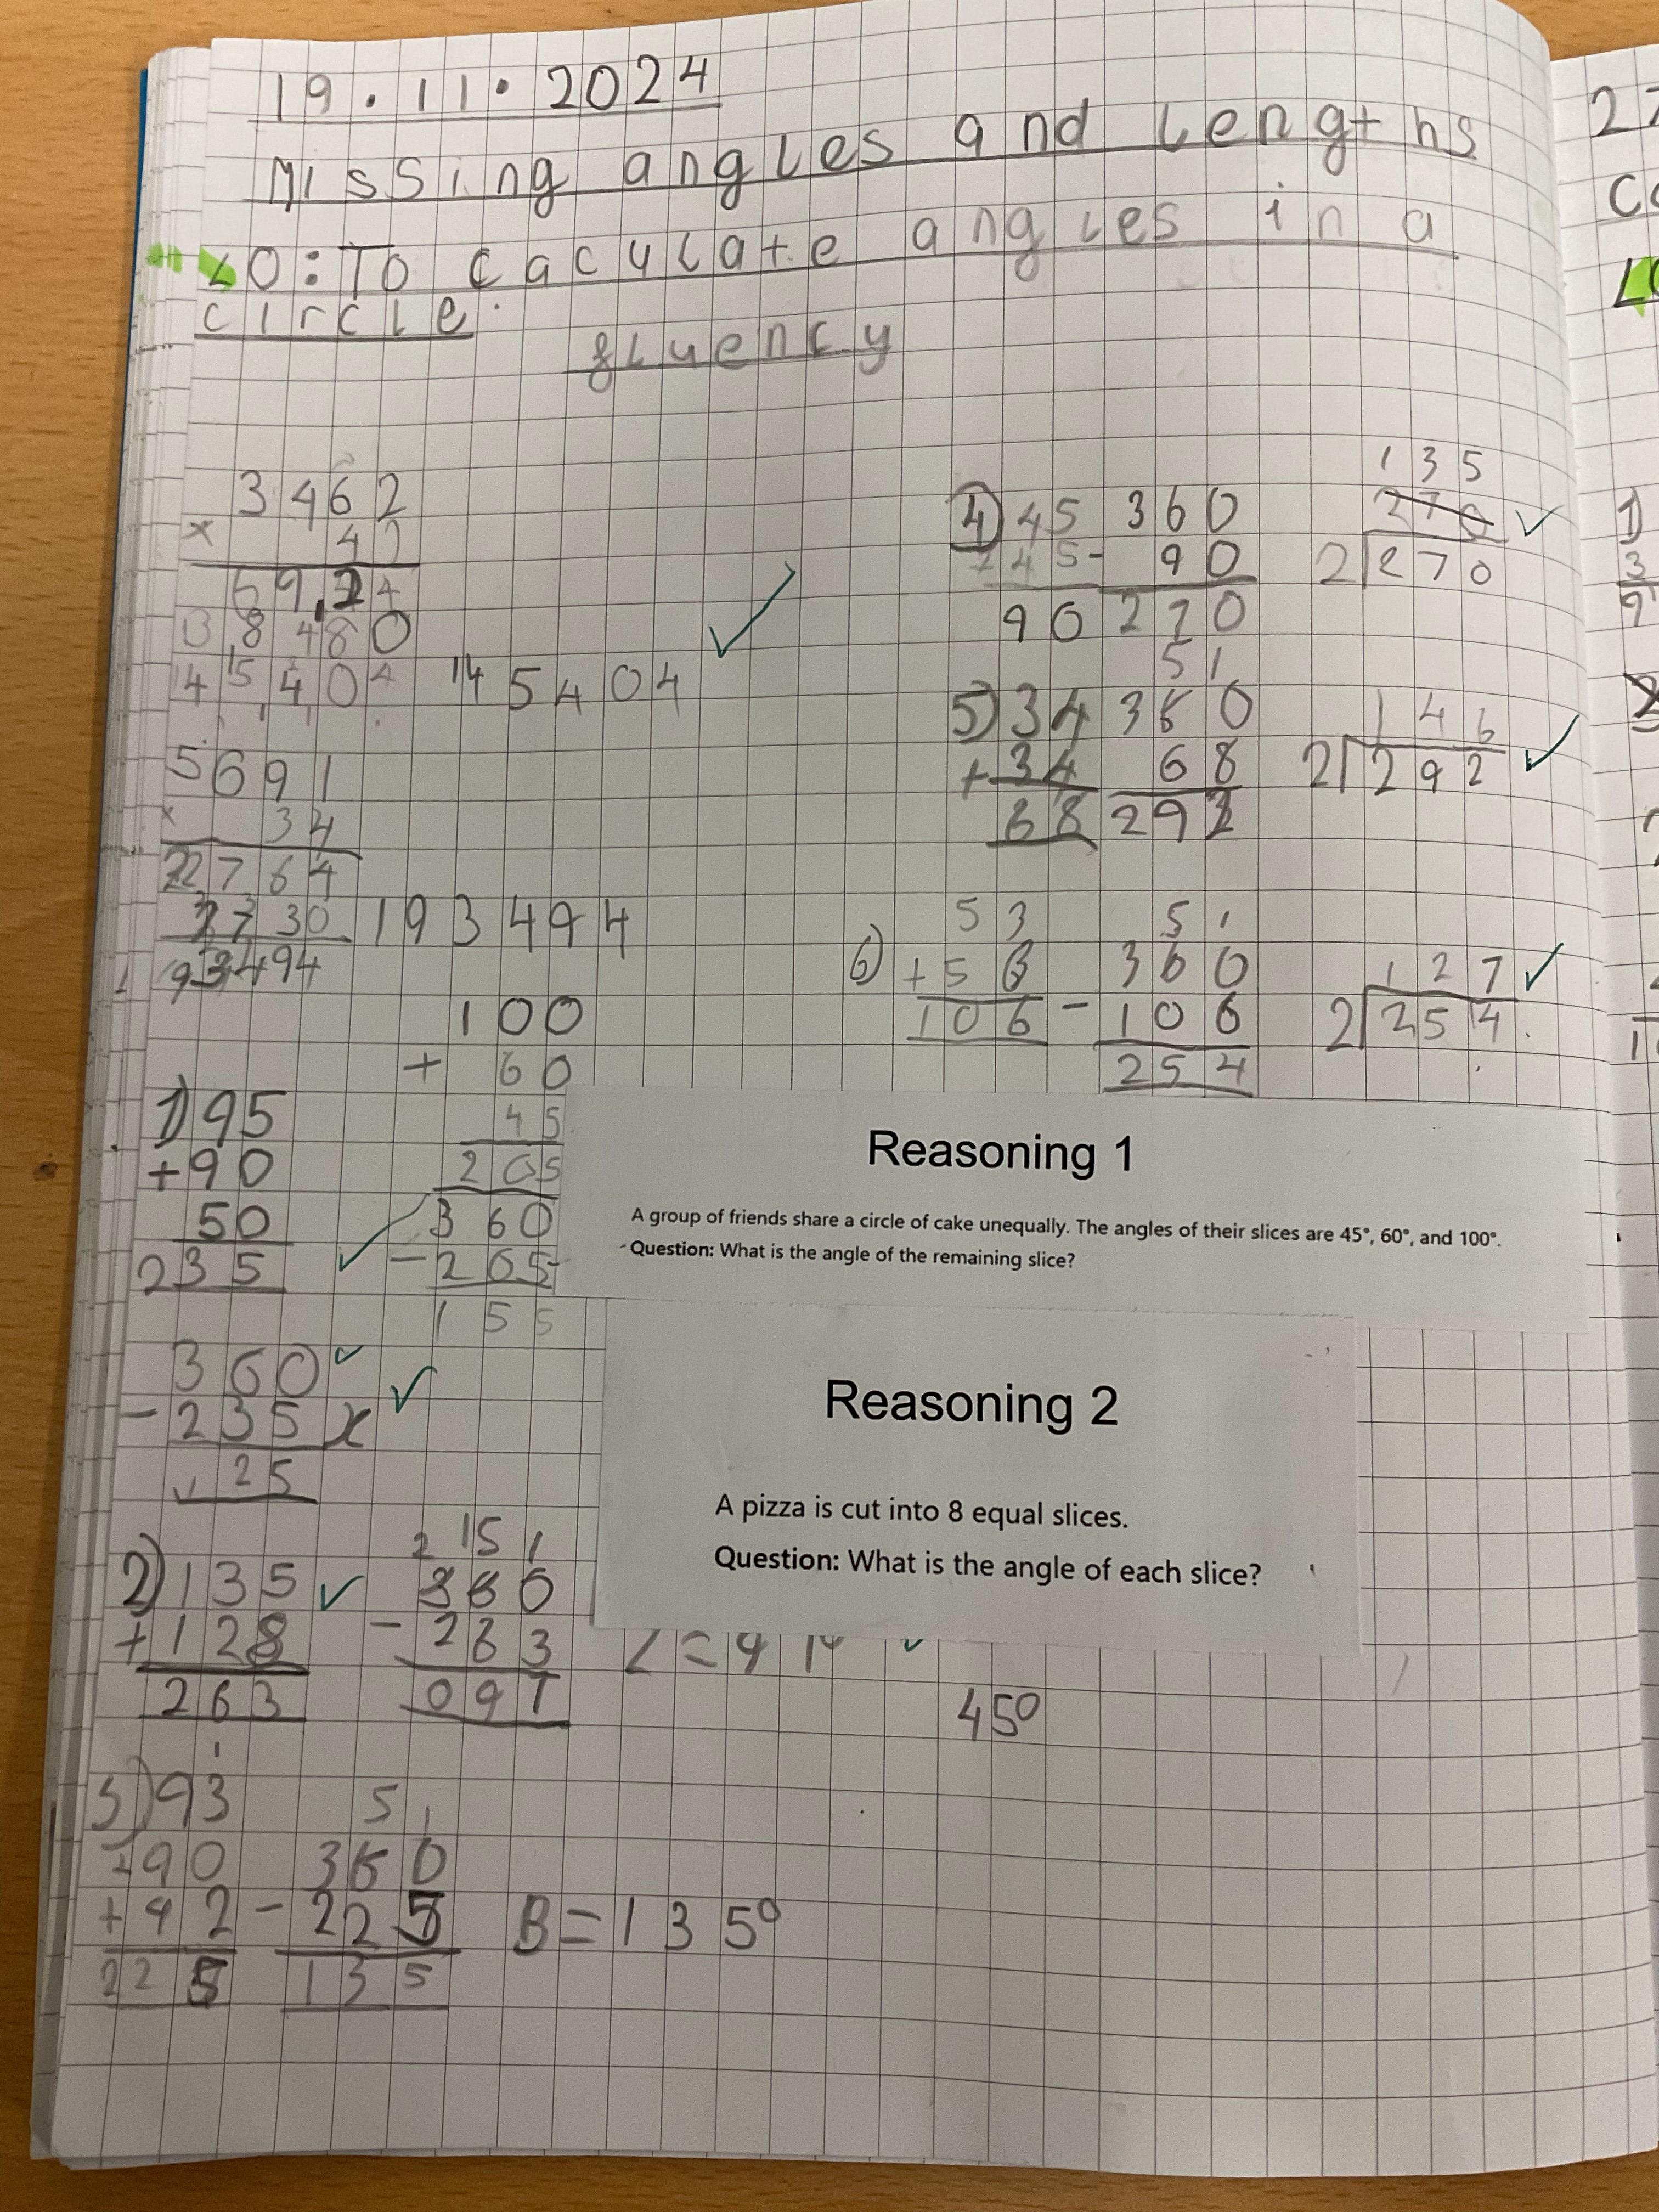 19.11.2024
Missing angles and lengths
LO: To caculate angles in a
circle.
fluency
3462
x 42
6924
138480
145,404 145404
5691
x 34
22764
193494
193494
100
+ 60
45
205
360
- 205
155
1) 95
+ 90
50
235
360
- 235 x
125
2) 135
+ 128
263
2 15 1
360
- 263
097
93
+ 90
+ 42
225
5 1
360
- 225
135
B = 135°
4) 45
+ 45
90
360
- 90
270
135
270
2 270
5) 34
+ 34
68
5 1
360
68
292
146
2 292
6) 53
+ 53
106
5 1
360
- 106
254
127
2 254
Reasoning 1
A group of friends share a circle of cake unequally. The angles of their slices are 45°, 60°, and 100°.
Question: What is the angle of the remaining slice?
Reasoning 2
A pizza is cut into 8 equal slices.
Question: What is the angle of each slice?
45°
27